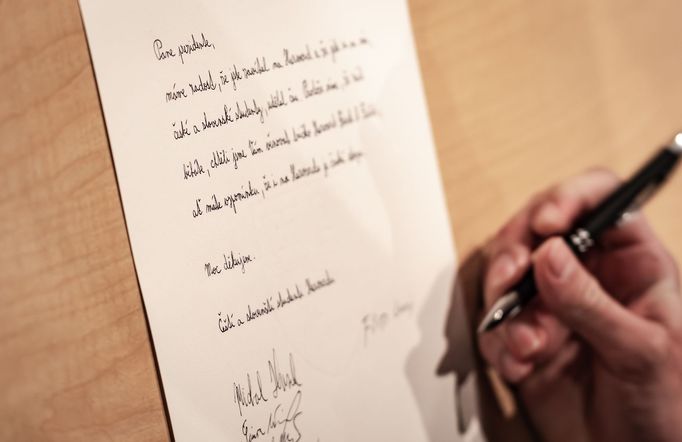 Pane prezidente,
máme radost, že jste zavítal na Harvard a že jste si na nás,
české a slovenské studenty, udělal čas. Protože víme, že rád
běháte, chtěli jsme Vám věnovat tričko Harvard
ať máte vzpomínku, že i na Harvardu je česká stopa.
Moc děkujeme.
Čeští a slovenští studenti Harvardu
Filip
Michal